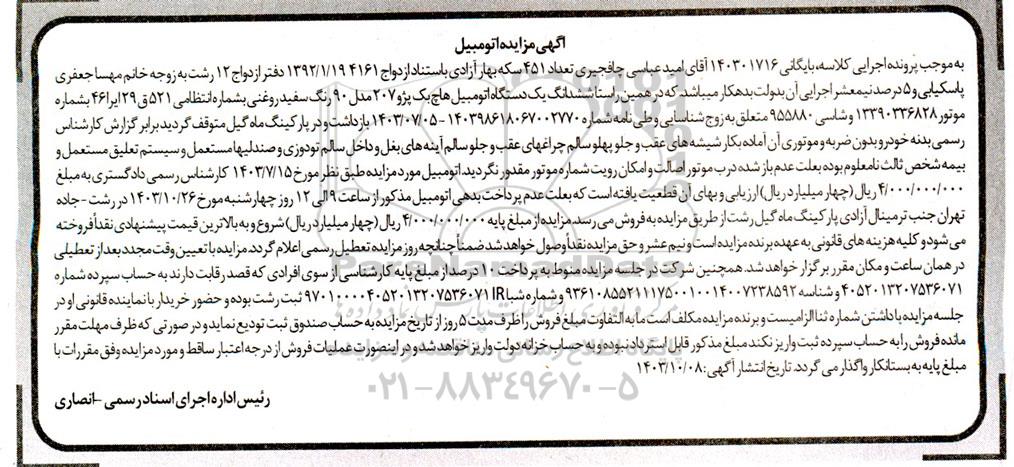 آگهی مزایده اتومبیل
به موجب پرونده اجرایی کلاسه، بایگانی ۱۴۰۳۰۱۷۱۶ آقای امید عباسی چافجیری تعداد ۴۵۱ سکه بهار آزادی باستناد ازدواج ۴۱۶۱ ۱۳۹۲/۱/۱۹ دفتر ازدواج ۱۲ رشت به زوجه خانم مهسا جعفری
پاسکیابی و ۵ درصد نیم عشر اجرایی آن بدولت بدهکار میباشد. که در همین راستا ششدانگ یک دستگاه اتومبیل هاچ بک پژو ۲۰۷ مدل ۹۰ رنگ سفید روغنی بشماره انتظامی ۵۲۱ ق ۲۹ ایرا ۴۶ بشماره
موتور ۱۳۳۹۰۳۳۶۸۲۸ و شاسی ۹۵۵۸۸۰ متعلق به زوج شناسایی و طی نامه شماره ۱۴۰۳۹۸۶۱۸۰۶۷۰۰۲۷۷۰ - ۱۴۰۳/۰۷/۰۵ بازداشت و در پارکینگ ماه گیل متوقف گردید برابر گزارش کارشناس
رسمی بدنه خودرو بدون ضربه و موتوری آن آماده بکار شیشه های عقب و جلو پهلو سالم چراغهای عقب و جلو سالم آینه های بغل و داخل سالم تودوزی و صندلیها مستعمل و سیستم تعلیق مستعمل و
بیمه شخص ثالث نامعلوم بوده بعلت عدم باز شده درب موتور اصالت و امکان رویت شماره موتور مقدور نگردید. اتومبیل مورد مزایده طبق نظر مورخ ۱۴۰۳/۷/۱۵ کارشناس رسمی دادگستری به مبلغ
۴/۰۰۰/۰۰۰/۰۰۰ ریال (چهار میلیارد ریال) ارزیابی و بهای آن قطعیت یافته است که بعلت عدم پرداخت بدهی اتومبیل مذکور از ساعت ۹ الی ۱۲ روز چهارشنبه مورخ ۱۴۰۳/۱۰/۲۶ در رشت - جاده
تهران جنب ترمینال آزادی پارکینگ ماه گیل رشت از طریق مزایده به فروش می رسد. مزایده از مبلغ پایه ۴/۰۰۰/۰۰۰/۰۰۰ ریال (چهار میلیارد ریال) شروع و به بالاترین قیمت پیشنهادی نقداً فروخته
می شود و کلیه هزینه های قانونی به عهده برنده مزایده است و نیم عشر و حق مزایده نقداً وصول خواهد شد ضمناً چنانچه روز مزایده تعطیل رسمی اعلام گردد مزایده با تعیین وقت مجدد بعد از تعطیلی
در همان ساعت و مکان مقرر برگزار خواهد شد. همچنین شرکت در جلسه مزایده منوط به پرداخت ۱۰ درصد از مبلغ پایه کارشناسی از سوی افرادی که قصد رقابت دارند به حساب سپرده شماره
۴۰۵۲۰۱۳۲۰۷۵۳۶۰۷۱ و شناسه ۹۳۶۱۰۸۵۵۲۱۱۱۷۵۰۰۱۰۰۱۴۰۰۷۲۳۸۵۹۲ و شماره شبا IR ۹۷۰۱۰۰۰۰۴۰۵۲۰۱۳۲۰۷۵۳۶۰۷۱ ثبت رشت بوده و حضور خریدار یا نماینده قانونی او در
جلسه مزایده با داشتن شماره ثنا الزامیست و برنده مزایده مکلف است ما به التفاوت مبلغ فروش را ظرف مدت ۵ روز از تاریخ مزایده به حساب صندوق ثبت تودیع نماید و در صورتی که ظرف مهلت مقرر
مانده فروش را به حساب سپرده ثبت واریز نکند مبلغ مذکور قابل استرداد نبوده و به حساب خزانه دولت واریز خواهد شد و در اینصورت عملیات فروش از درجه اعتبار ساقط و مورد مزایده وفق مقررات با
مبلغ پایه به بستانکار واگذار می گردد. تاریخ انتشار آگهی: ۱۴۰۳/۱۰/۰۸
رئیس اداره اجرای اسناد رسمی - انصاری
ParsNamadData
۰۲۱-۸۸۳۴۹۶۷۰-۵